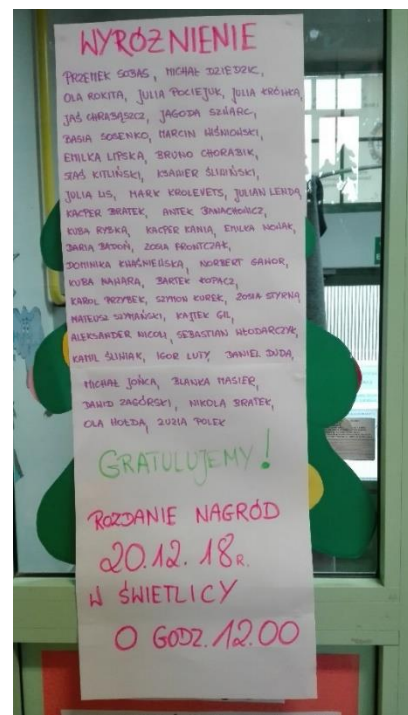 WYRÓŻNIENIE
PRZEMEK SOBAS, MICHAŁ DZIEDZIC,
OLA ROKITA, JULIA POCIEJUK, JULIA KRÓWKA,
JAŚ CHRABĄSZCZ, JAGODA SZWARC,
BASIA SOSENKO, MARCIN WIŚNIOWSKI,
EMILKA LIPSKA, BRUNO CHORABIK,
STAŚ KITLIŃSKI, KSAWIER ŚLIWIŃSKI,
JULIA LIS, MARK KROLEVETS, JULIAN LENDA,
KACPER BRATEK, ANTEK BANACHOWICZ,
KUBA RYBKA, KACPER KANIA, EMILKA NOWAK,
DARIA BADOŃ, ZOSIA FRONTCZAK,
DOMINIKA KWAŚNIEWSKA, NORBERT GAWOR,
KUBA MAHARA, BARTEK ŁOPACZ,
KAROL PRZYBEK, SZYMON KOREK, ZOSIA STYRNA,
MATEUSZ SZYMAŃSKI, KAJTEK GIL,
ALEKSANDER NICOLI, SEBASTIAN WŁODARCZYK,
KAMIL ŚLIWIAK, IGOR LUTY, DANIEL DUDA,
MICHAŁ JOŃCA, BLANKA MASIER,
DAWID ZAGÓRSKI, NIKOLA BRATEK,
OLA HOŁDA, ZUZIA POLEK
GRATULUJEMY!
ROZDANIE NAGRÓD
20.12.18R.
W ŚWIETLICY
O GODZ. 12.00